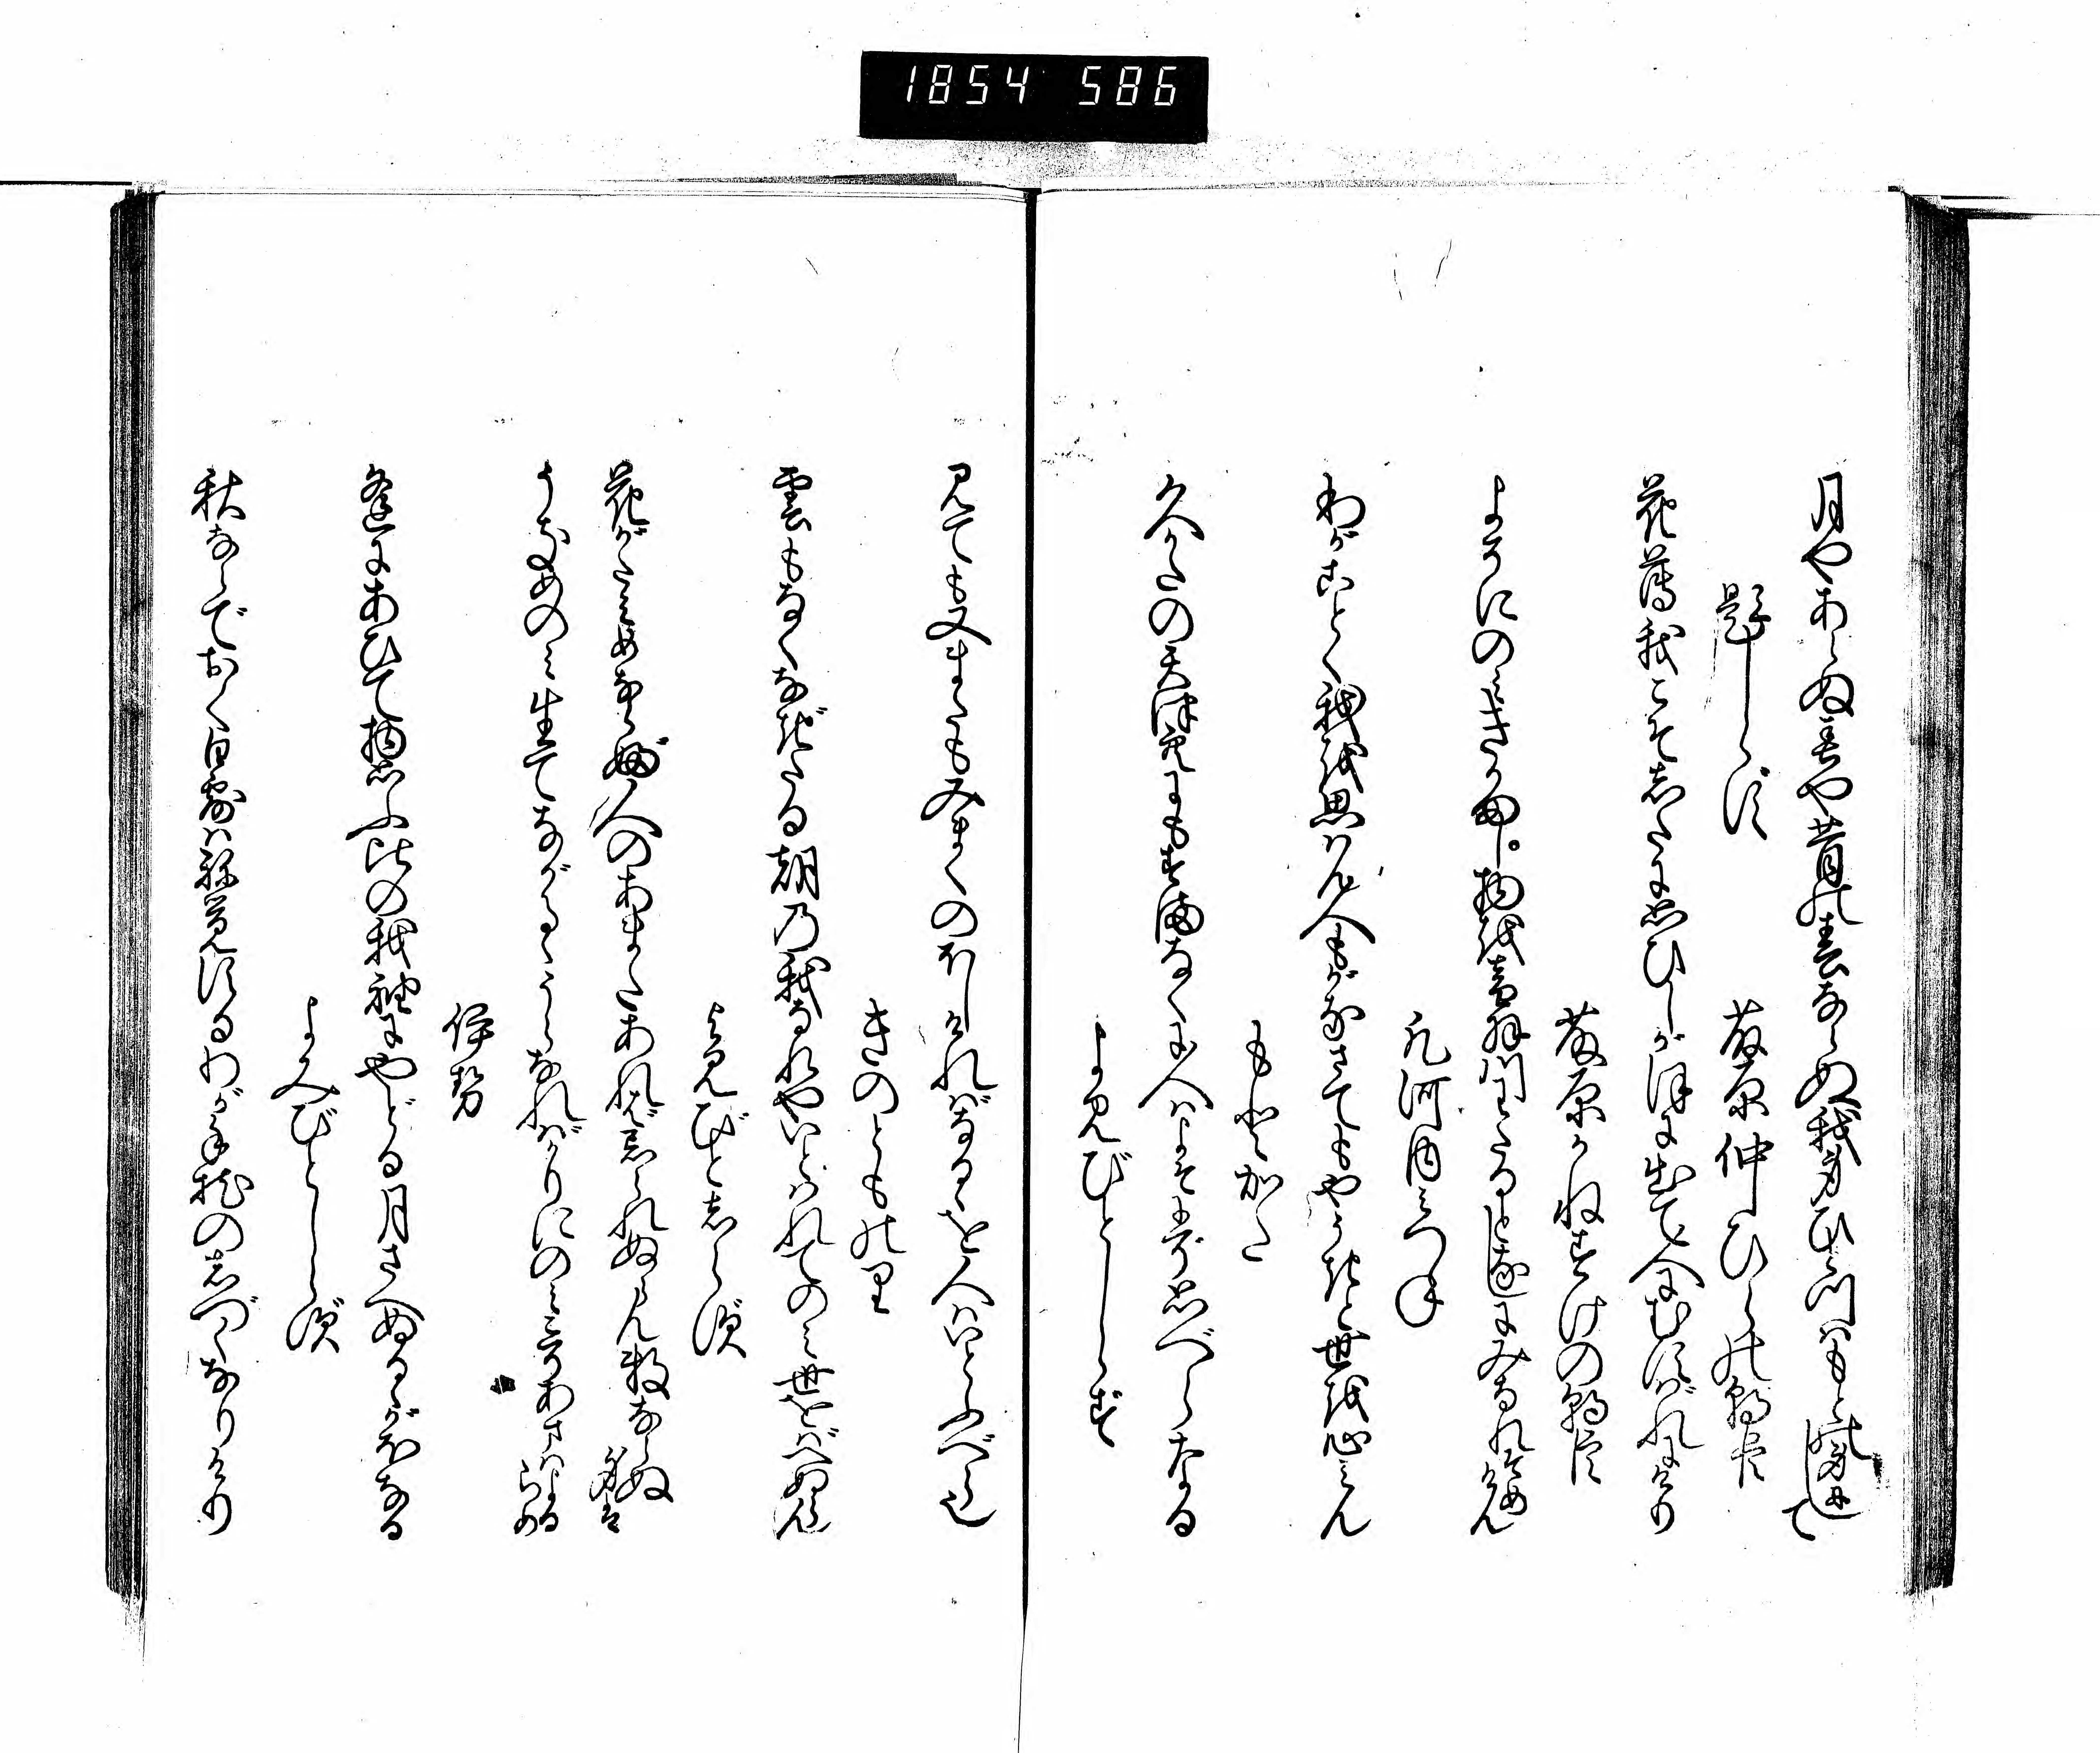 1854 586
月やあらぬ春や昔の春ならぬ我身ひとつはもとの身にして
題しらす
藤原仲ひらの朝臣
花薄我こそしたに思ひしかほに出て人にむすばれにけり
藤原かねすけの朝臣
よそにのみきかまし物を音羽川わたるとなしにみなれそめけん
凡河内みつね
わがごとく我を思はん人もがなさてもやうきと世を心みん
もとかた
久かたの天津空にもすまなくに人はよそにぞ思べらなる
よみびとしらず
見ても又またもみまくのほしければなるゝを人はいとふべら也
きのとものり
雲もなくなぎたる朝の我なれやいとはれてのみ世をばへぬらん
よみびとしらず
花がたみめならぶ人のあまたあれば忘られぬらん数ならぬ身は
うきめのみ生てながるゝうらなればかりにのみこそあまはよるらめ
伊勢
逢にあひて物思ふ比の我袖にやどる月さへぬるゝがほなる
よみびとしらず
秋ならでおく白露はね覚するわが手枕のしづくなりけり